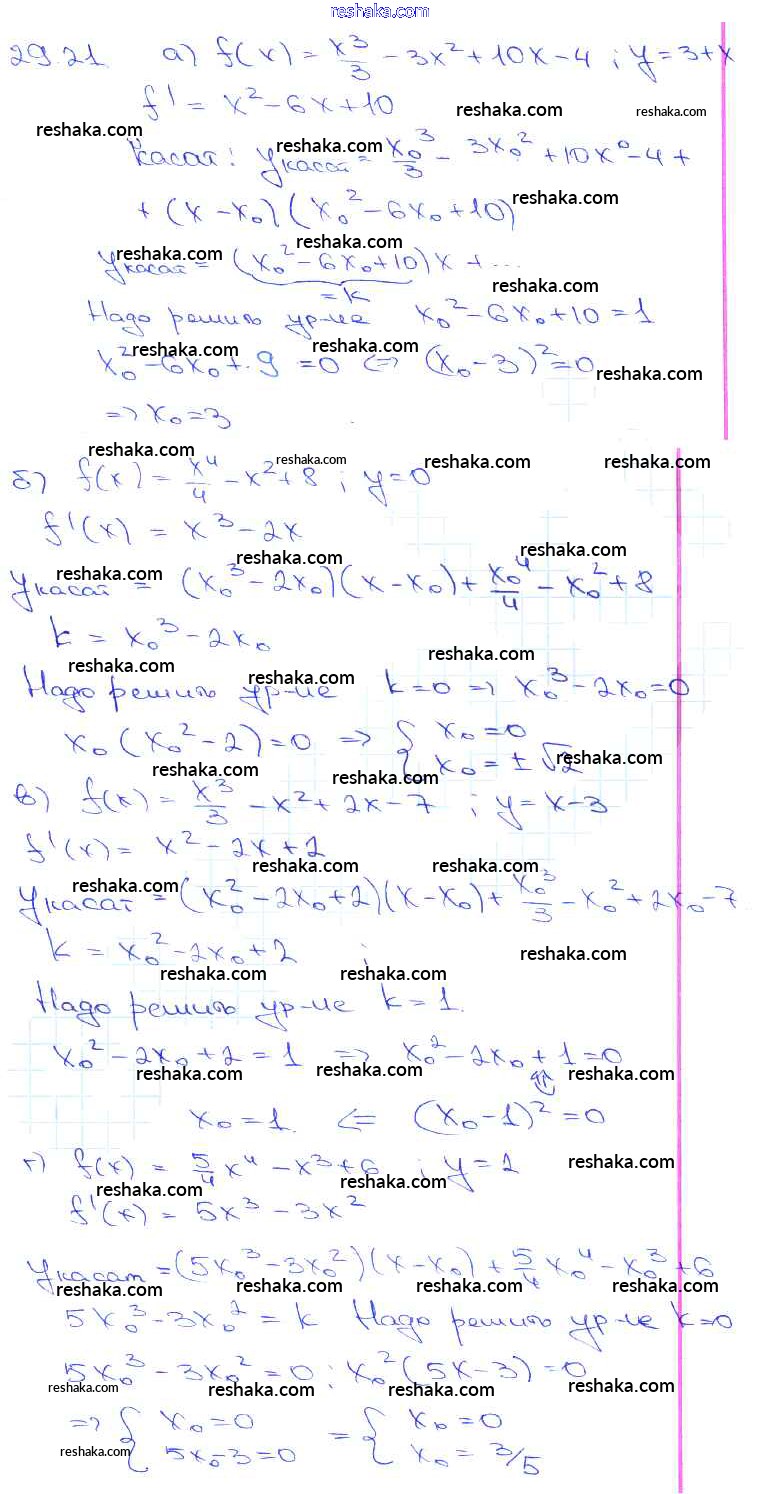 reshaka.com
29.21. а) f(x) = x³/3 - 3x² + 10x - 4 ; y = 3 + x
f' = x² - 6x + 10
reshaka.com reshaka.com reshaka.com
Касат: yкасат = x₀³/3 - 3x₀² + 10x⁰ - 4 +
reshaka.com
+ (x - x₀)(x₀² - 6x₀ + 10)
reshaka.com
reshaka.com reshaka.com
yкасат = (x₀² - 6x₀ + 10)x + ...
= k
reshaka.com
Надо решить ур-ие x₀² - 6x₀ + 10 = 1
reshaka.com reshaka.com
x₀² - 6x₀ + 9 = 0 <=> (x₀ - 3)² = 0
reshaka.com
=> x₀ = 3
reshaka.com reshaka.com reshaka.com reshaka.com
б) f(x) = x⁴/4 - x² + 8 ; y = 0
f'(x) = x³ - 2x
reshaka.com reshaka.com reshaka.com
yкасат = (x₀³ - 2x₀)(x - x₀) + x₀⁴/4 - x₀² + 8
k = x₀³ - 2x₀
reshaka.com reshaka.com reshaka.com
Надо решить ур-ие k = 0 => x₀³ - 2x₀ = 0
x₀(x₀² - 2) = 0 => { x₀ = 0
x₀ = ± √2
reshaka.com reshaka.com reshaka.com
в) f(x) = x³/3 - x² + 2x - 7 ; y = x - 3
f'(x) = x² - 2x + 2
reshaka.com reshaka.com reshaka.com
yкасат = (x₀² - 2x₀ + 2)(x - x₀) + x₀³/3 - x₀² + 2x₀ - 7
k = x₀² - 2x₀ + 2 ;
reshaka.com reshaka.com reshaka.com
Надо решить ур-ие k = 1.
x₀² - 2x₀ + 2 = 1 => x₀² - 2x₀ + 1 = 0
reshaka.com reshaka.com reshaka.com
x₀ = 1. <= (x₀ - 1)² = 0
г) f(x) = 5/4 x⁴ - x³ + 6 ; y = 2
reshaka.com reshaka.com reshaka.com
f'(x) = 5x³ - 3x²
yкасат = (5x₀³ - 3x₀²)(x - x₀) + 5/4 x₀⁴ - x₀³ + 6
reshaka.com reshaka.com reshaka.com reshaka.com
5x₀³ - 3x₀² = k Надо решить ур-ие k = 0
5x₀³ - 3x₀² = 0 ; x₀²(5x - 3) = 0
reshaka.com reshaka.com reshaka.com reshaka.com
=> { x₀ = 0 = { x₀ = 0
5x₀ - 3 = 0 x₀ = 3/5
reshaka.com